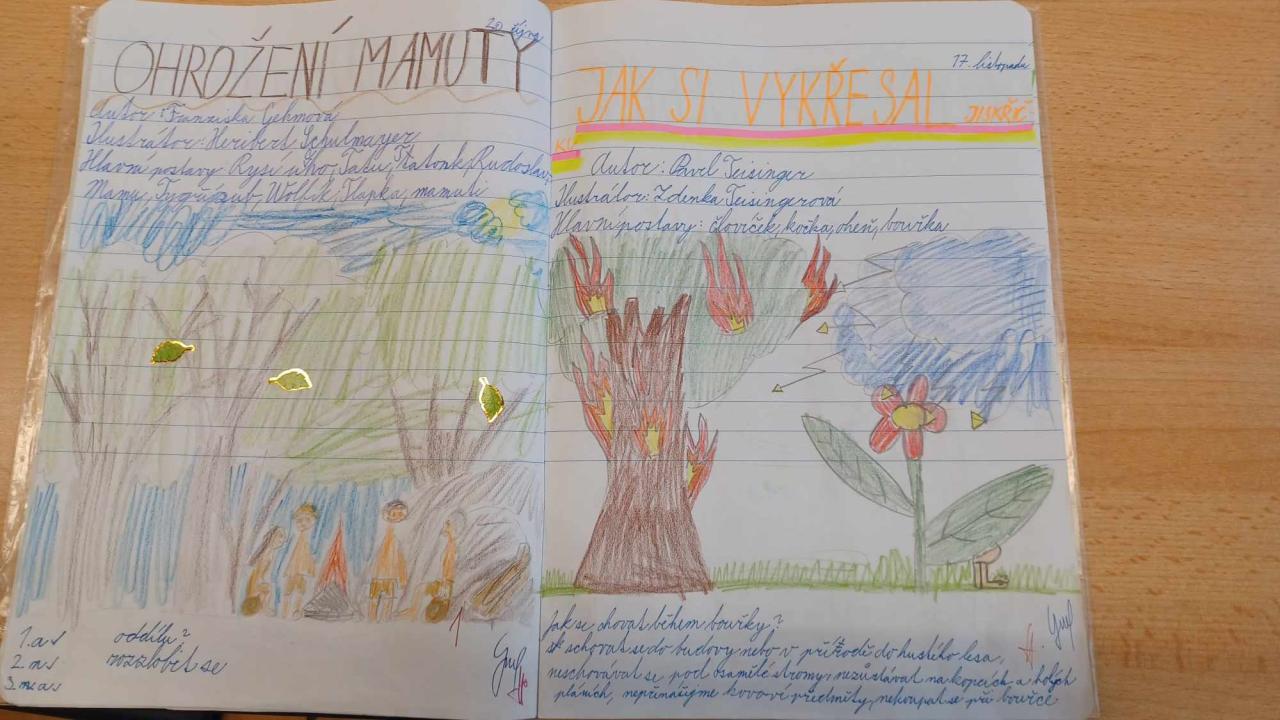 20. října
OHROŽENÍ MAMUTY
Autor: Franziska Gehmová
Ilustrátor: Heribert Schulmayer
Hlavní postavy: Rysí ucho, Taču, Tatonk, Rudoslav,
Mamu, Tygřízub, Wolfík, Tlapka, mamuti
1. a s oddílu?
2. a s rozzlobit se
3.
1
17. listopadu
JAK SI VYKŘESAL JISKŘIČ-
KU
Autor: Pavel Teisinger
Ilustrátor: Zdenka Teisingerová
Hlavní postavy: človíček, kočka, oheň, bouřka
Jak se chovat během bouřky?
schovat se do budovy nebo v přírodě do hustého lesa,
neschovávat se pod osamělé stromy, nezůstávat na kopcích a holých
pláních, nepřenášejme kovové předměty, nekoupat se při bouřce